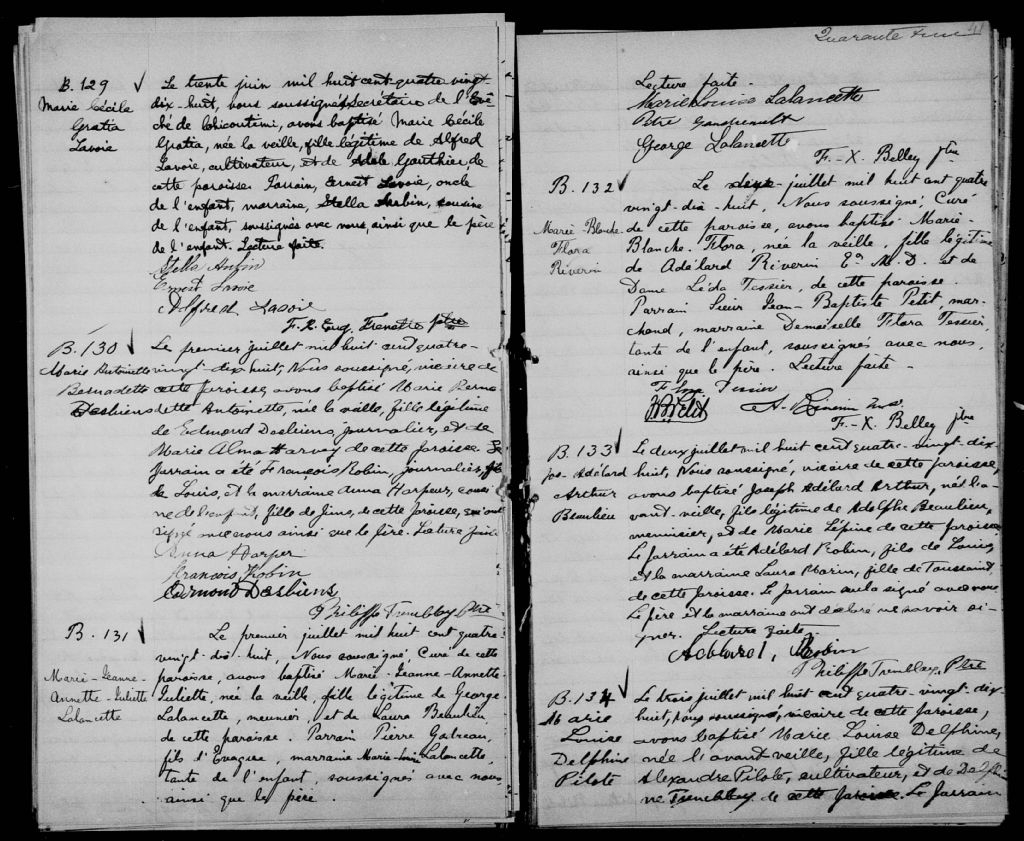 B. 129
Marie Cécile
Gratia
Lavoie
Le trente juin mil huit cent quatre vingt
dix-huit, nous soussigné, secrétaire de l'Evê-
ché de Chicoutimi, avons baptisé Marie Cécile
Gratia, née la veille, fille légitime de Alfred
Lavoie, cultivateur, et de Adèle Gauthier, de
cette paroisse. Parrain, Ernest Lavoie, oncle
de l'enfant, marraine, Stella Aubin, cousine
de l'enfant, soussignés avec nous, ainsi que le père
de l'enfant. Lecture faite.
Stella Aubin
Ernest Lavoie
Alfred Lavoie
F. X. Eug. Frenette ptre
B. 130
Marie Antoinette
Bernadette
Desbiens
Le premier juillet mil huit cent quatre-
vingt-dix-huit, Nous soussigné, vicaire de
cette paroisse, avons baptisé Marie Berna
dette Antoinette, née la veille, fille légitime
de Edmond Desbiens, journalier, et de
Marie Alma Harvey de cette paroisse. Le
parrain a été François Robin, journalier, fils
de Louis, et la marraine Anna Harpeur, cousi
ne de l'enfant, fille de Jims, de cette paroisse, qui ont
signé avec nous ainsi que le père. Lecture faite
Anna Harper
François Robin
Edmond Desbiens
Philippe Tremblay Ptre
B. 131
Marie-Jeanne-
Annette-Juliette
Lalancette
Le premier juillet mil huit cent quatre
vingt-dix-huit, Nous soussigné, Curé de cette
paroisse, avons baptisé Marie-Jeanne-Annette-
Juliette, née la veille, fille légitime de George
Lalancette, meunier, et de Laura Beaulieu,
de cette paroisse. Parrain Pierre
fils d'Evagre, marraine Marie-Louise Lalancette
tante de l'enfant, soussignés avec nous
ainsi que le père.
Quarante & un 41
Lecture faite.
Marie Louise Lalancette
George Lalancette
F.-X. Belley ptre
B. 132
Marie Blanche
Flora
Riverin
Le deux juillet mil huit cent quatre
vingt-dix-huit, Nous soussigné, Curé
de cette paroisse, avons baptisé Marie-
Blanche-Flora, née la veille, fille légitime
de Adélard Riverin Er M.D. et de
Dame Léda Tessier, de cette paroisse.
Parrain Sieur Jean-Baptiste Petit mar-
chand, marraine Demoiselle Flora Tessier,
tante de l'enfant, soussignés avec nous,
ainsi que le père. Lecture faite -
Flora Tessier
JBPetit
A. Riverin M.D.
F.-X. Belley ptre
B. 133
Jos-Adélard
Arthur
Beaulieu
Le deux juillet mil huit cent quatre-vingt-dix
huit, Nous soussigné, vicaire de cette paroisse,
avons baptisé Joseph Adélard Arthur, né l'a-
vant-veille, fils légitime de Adolphe Beaulieu,
menuisier, et de Marie Lépine de cette paroisse.
Le parrain a été Adélard Robin, fils de Louis,
et la marraine Laura Morin, fille de Toussaint,
de cette paroisse. Le parrain seul a signé avec nous
Le père et la marraine ont déclaré ne savoir si-
gner. Lecture faite.
Adélard Robin
Philippe Tremblay Ptre
B. 134
Marie
Louise
Delphine
Pilote
Le trois juillet mil huit cent quatre-vingt-dix-
huit, Nous soussigné, vicaire de cette paroisse,
avons baptisé Marie Louise Delphine,
née l'avant-veille, fille légitime de
Alexandre Pilote, cultivateur, et de Delphi
ne Tremblay de cette paroisse. Le parrain